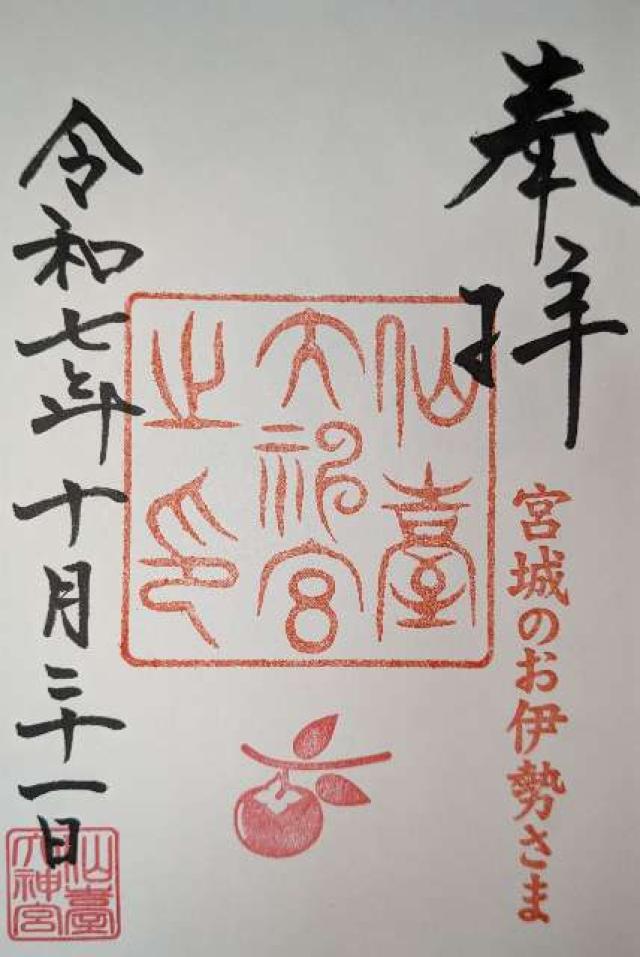 奉拝
宮城のお伊勢さま
仙臺
大神宮
之印
令和七年十月三十一日
仙臺
大神宮